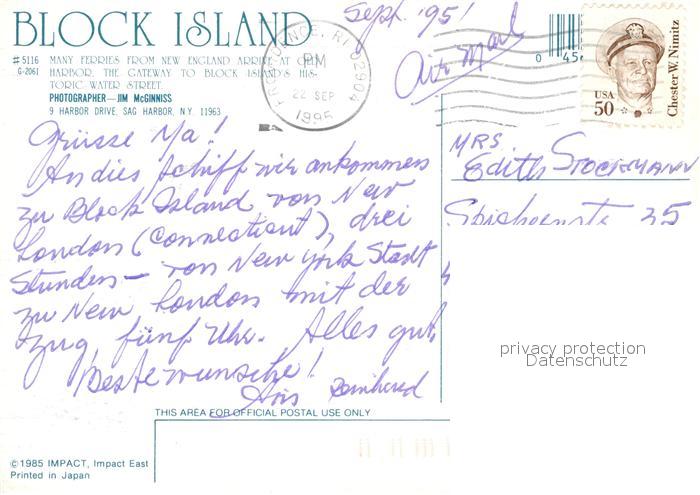 BLOCK ISLAND
# 5116
G-2061
MANY FERRIES FROM NEW ENGLAND ARRIVE AT OLD
HARBOR, THE GATEWAY TO BLOCK ISLAND'S HIS-
TORIC WATER STREET.
PHOTOGRAPHER—JIM McGINNISS
9 HARBOR DRIVE, SAG HARBOR, N.Y. 11963
Sept. '95
Air Mail
PROVIDENCE, RI 02904
PM
22 SEP
1995
0 45
USA
50
Chester W. Nimitz
Grüsse Ma!
An dies Schiff wir ankommen
zu Block Island von New
London (Connecticut), drei
Stunden — von New York Stadt
zu New London mit der
Zug fünf Uhr. Alles gut,
Beste wunsche!
MRS
Edith STOCKMANN
25
privacy protection
Datenschutz
THIS AREA FOR OFFICIAL POSTAL USE ONLY
©1985 IMPACT, Impact East
Printed in Japan